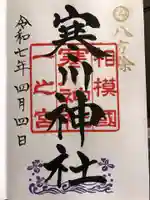 八方除
相模國
寒川神社
一之宮
令和七年四月四日